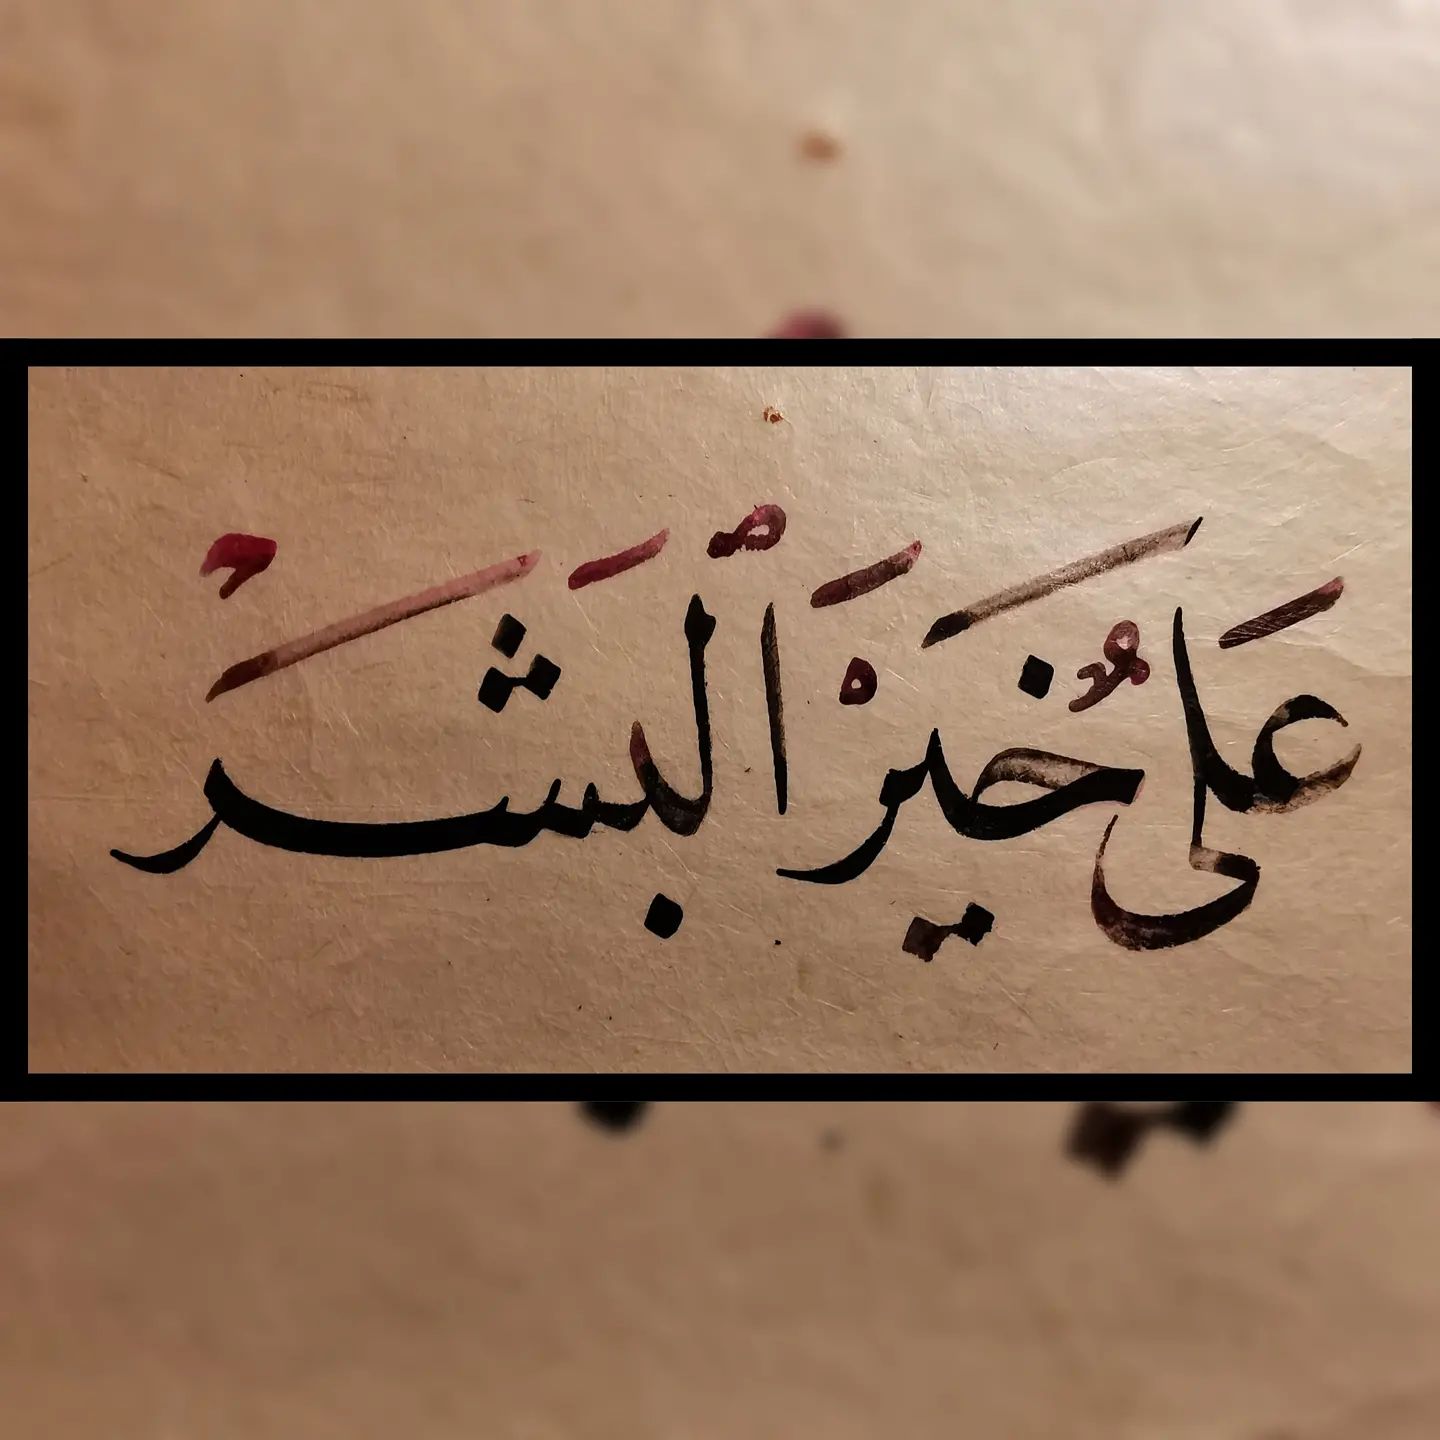 عَلىٰ خَيْرُ ٱلْبَشَرْ